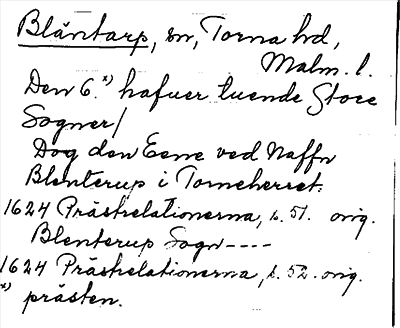 Bläntarp, sn, Torna hd,
Malm. l.
Den 6.ˣ⁾ hafuer tuende Store
Sogner/
Dog den Eene ved Naffn
Blenterup i Torneherret.
1624 Prästrelationerna, s. 51. orig.
Blenterup Sogn----
1624 Prästrelationerna, s. 52. orig.
ˣ⁾ prästen.